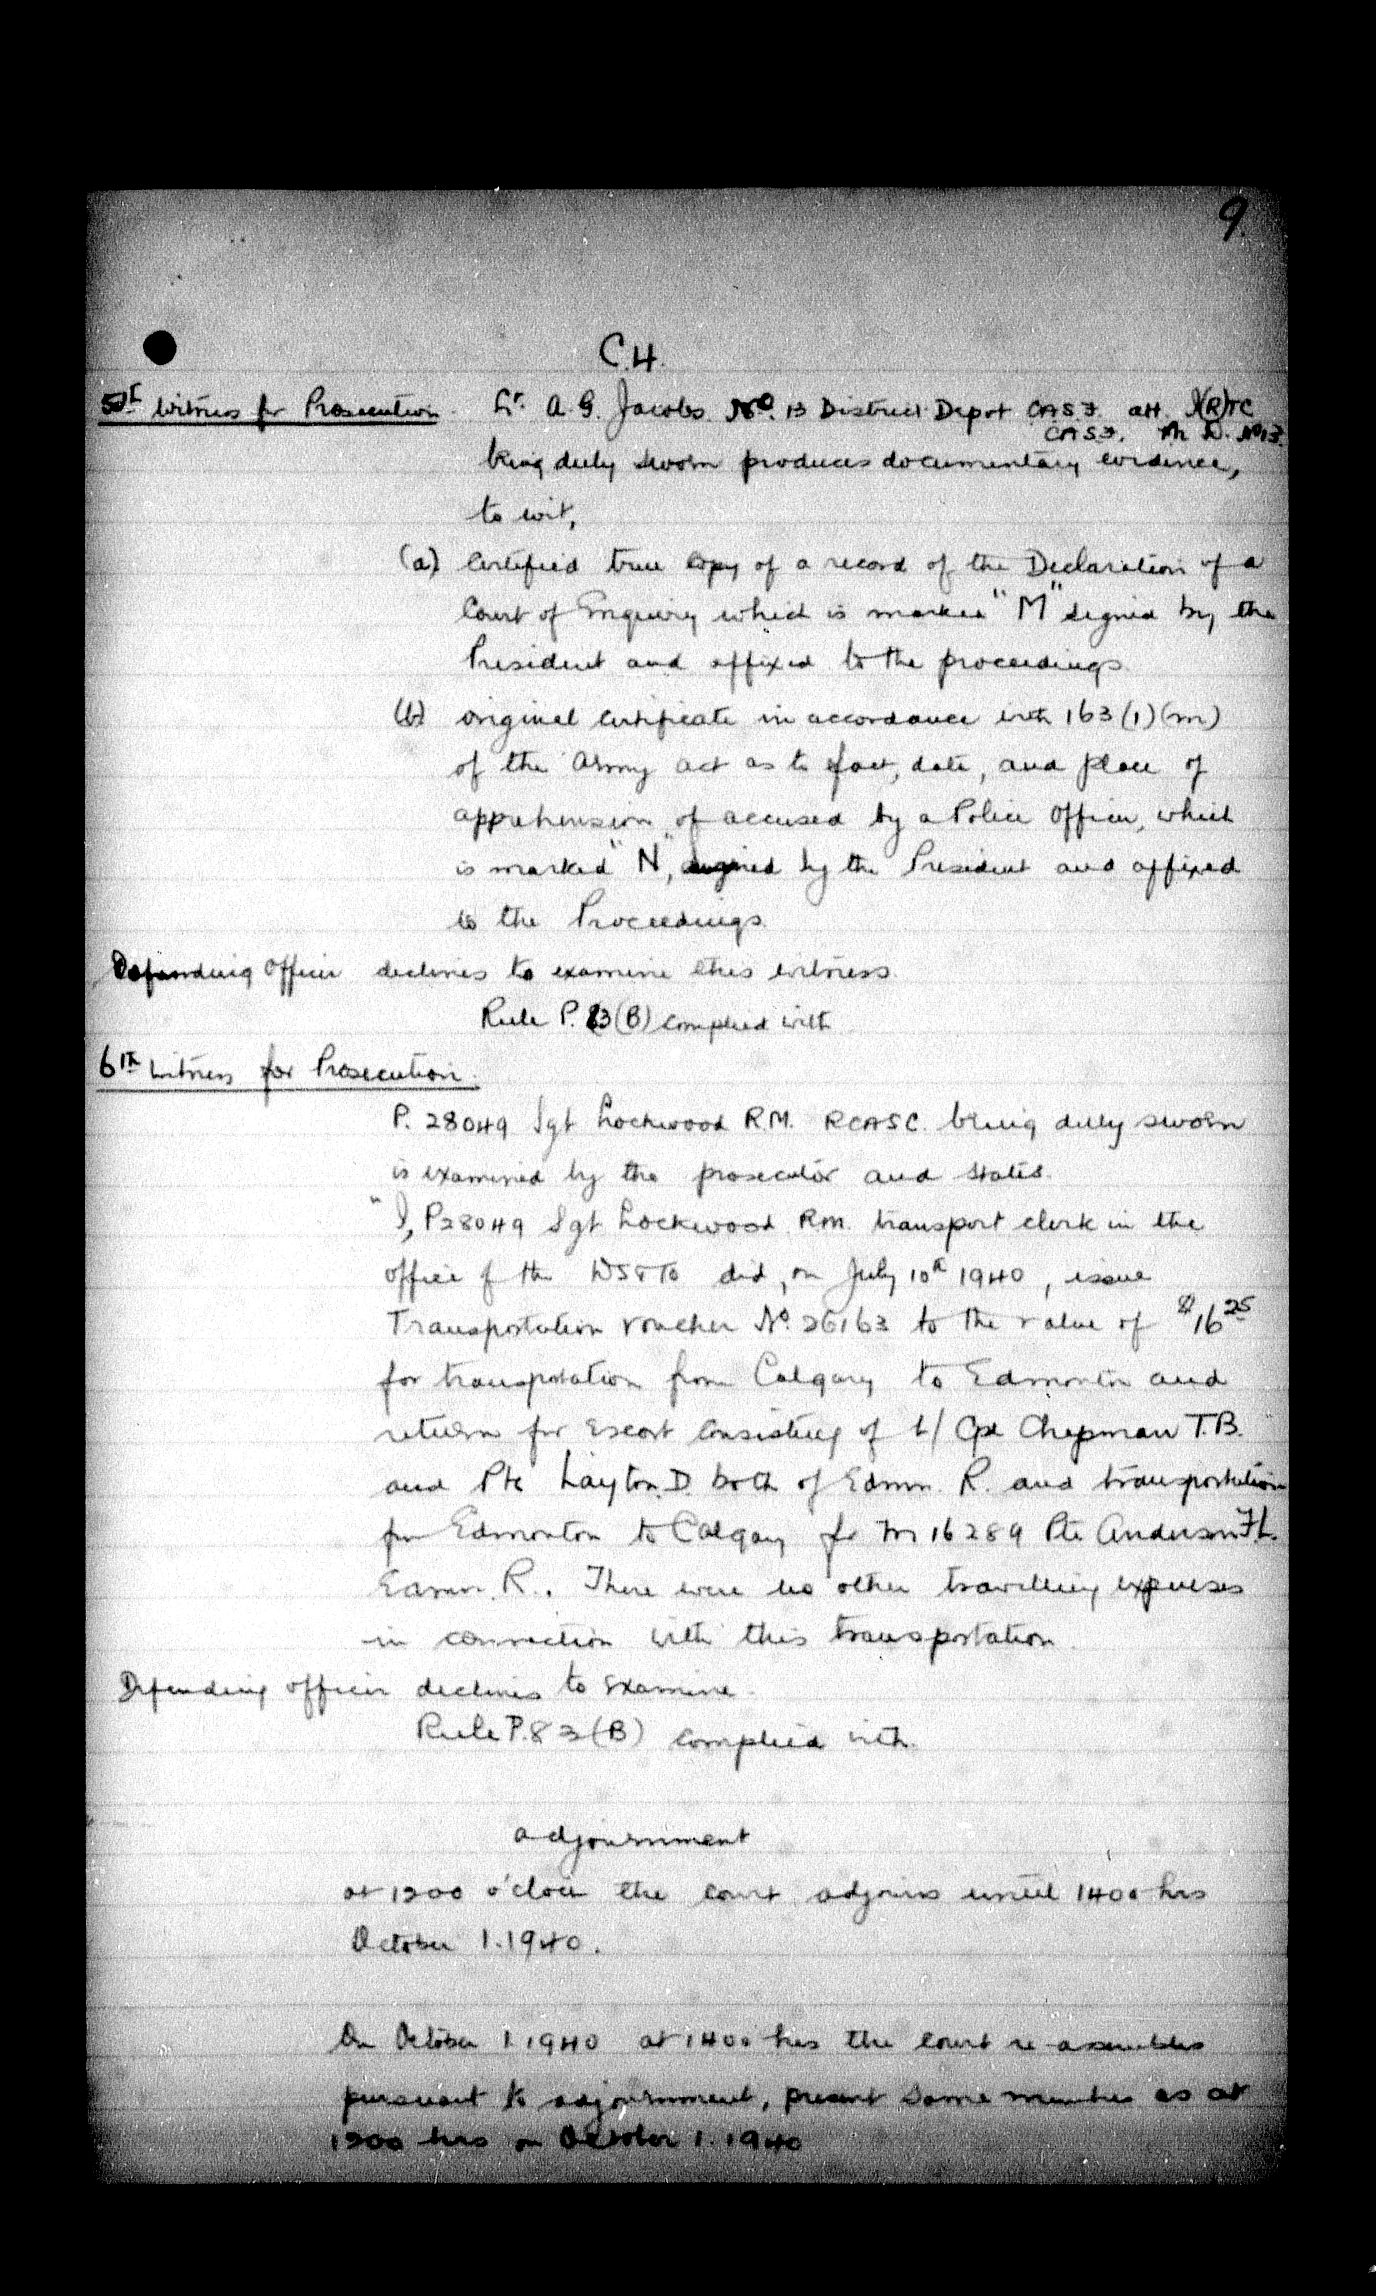 9.
C.4.
5th Witness for Prosecution. Lt. A.G. Jacobs No. 13 District Depot CASF. att. (R)TC
CASF. M.D. No 13.
being duly sworn produces documentary evidence,
to wit,
(a) Certified true copy of a record of the Declaration of a
Court of Enquiry which is marked "M" signed by the
President and affixed to the proceedings.
(b) original certificate in accordance with 163(1)(m)
of the Army Act as to fact, date, and place of
apprehension of accused by a Police Officer, which
is marked "N", signed by the President and affixed
to the Proceedings.
Defending Officer declines to examine this witness
Rule P. 83(B) complied with
6th Witness for Prosecution.
P. 28049 Sgt Lockwood R.M. RCASC. being duly sworn
is examined by the prosecutor and states.
"I, P28049 Sgt Lockwood R.M. transport clerk in the
office of the DS&TO did, on July 10th 1940, issue
Transportation voucher No. 26163 to the value of $16 25
for transportation from Calgary to Edmonton and
return for Escort consisting of L/Cpl Chapman T.B.
and Pte Layton D both of Edmn. R. and transportation
from Edmonton to Calgary for M 16289 Pte Anderson F.L.
Edmn. R.. There were no other travelling expenses
in connection with this transportation.
Defending officer declines to examine.
Rule P.83(B) complied with.
adjournment
at 1200 o'clock the court adjourns until 1400 hrs
October 1. 1940.
On October 1. 1940 at 1400 hrs the Court re-assembles
pursuant to adjournment, present same members as at
1200 hrs on October 1. 1940